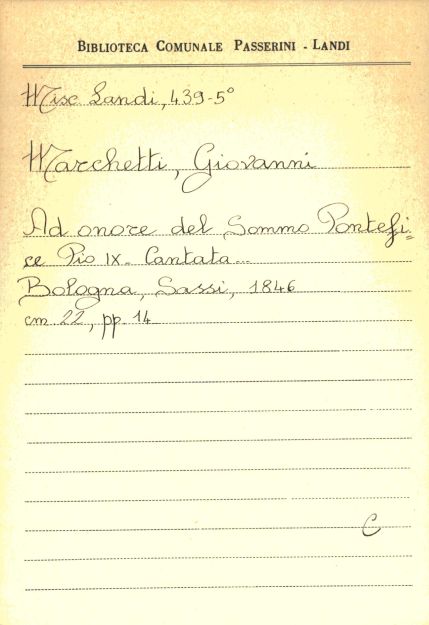 BIBLIOTECA COMUNALE PASSERINI - LANDI
Misc Landi, 439-5°
Marchetti, Giovanni
Ad onore del Sommo Pontefi=
ce Pio IX. Cantata...
Bologna, Sassi, 1846
cm 22, pp. 14
C